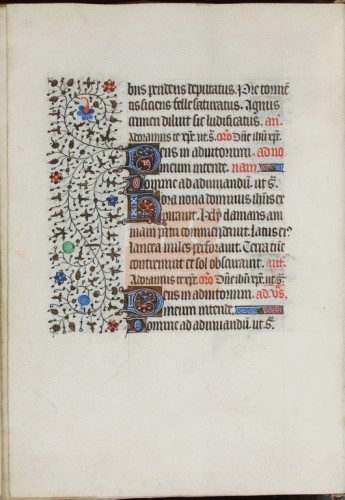 bus pendens deputatus. Pre tormen̄
tis siciens felle saturatus. Agnus
crimen diluit sic ludificatus. an̄.
Adoramus te xp̄e. ut s̄. or̄o Dn̄e ih̄u xp̄e.
Deus in adiutorium. ad no
meum intende. nam.
Domine ad adiuuandū. ut s̄.
Hora nona dominus ihesus ex
pirauit. Hely clamans ani
mam patri commendauit. Latus eī
lancea miles perforauit. Terra tūc
contremuit et sol obscurauit. ant̄.
Adoramus te xp̄e. or̄o Dn̄e ih̄u xp̄e. ut s̄.
Deus in adiutorium. ad v̄s.
meum intende.
Domine ad adiuuandū. ut s̄.